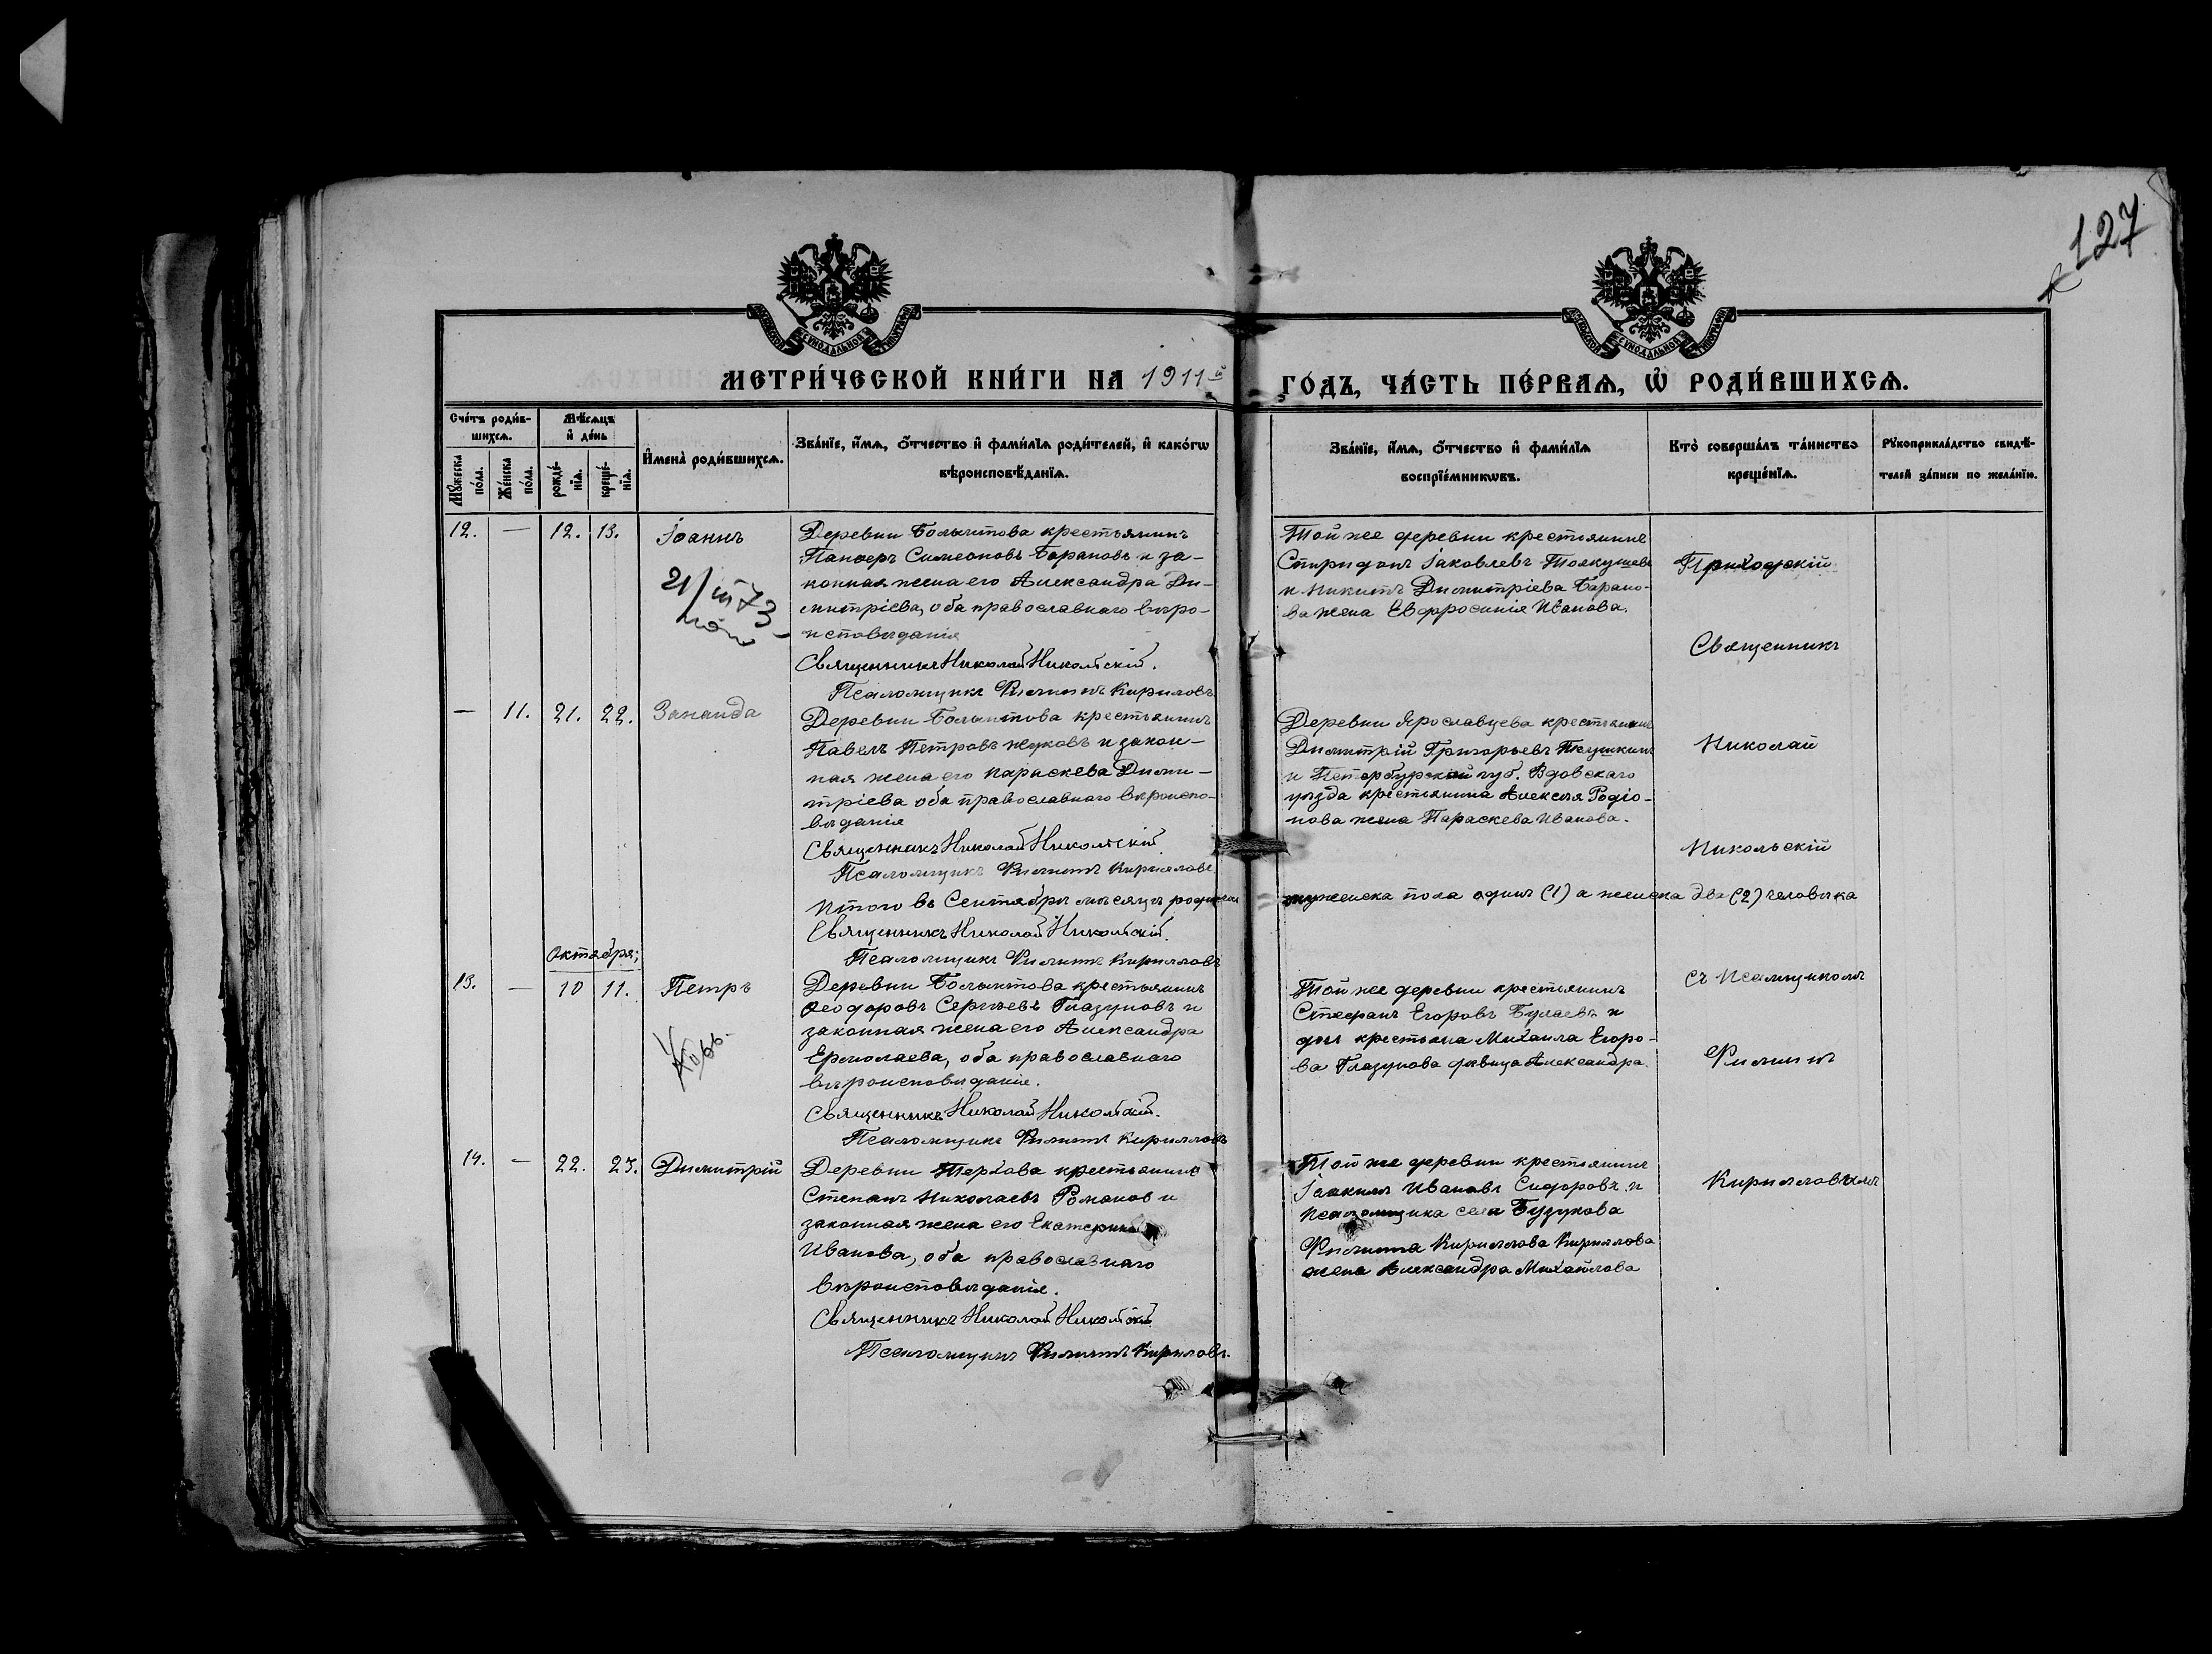 127
МЕТРИ́ЧЕСКОЙ КНИ́ГИ НА 1911й ГО́ДЪ, ЧА́СТЬ ПЕ́РВАѦ, Ѡ҆ РОДИ́ВШИХСѦ.
Сче́тъ роди́в-
шихсѧ.
Мꙋ́жеска по́ла.
Же́нска по́ла.
Мѣ́сѧцъ
и҆ де́нь
рожде́-
нїѧ.
креще́-
нїѧ.
И҆мена̀ роди́вшихсѧ.
Зва́нїе, и҆́мѧ, ѻ҆́тчество и҆ фами́лїѧ роди́телей, и҆ како́гѡ
вѣроисповѣ́данїѧ.
Зва́нїе, и҆́мѧ, ѻ҆́тчество и҆ фами́лїѧ
воспрїе́мникѡвъ.
Кто̀ соверша́лъ та́инство
креще́нїѧ.
Рꙋкоприкла́дство свидѣ́-
телей за́писи по жела́нїю.
12. — 12. 13. Іоаннъ
21/III 73
Деревни Болыктова крестьянинъ
Симеоновъ Барановъ и за-
конная жена его Александра Ди-
митріева, оба православнаго вѣро-
исповѣданія
Священникъ Николай Никольскій.
Псаломщикъ Филиппъ Кириловъ
Той же деревни крестьянинъ
Спиридонъ Іаковлевъ
и Димитріева Барано-
ва жена Евфросинія Иванова.
Приходскій
Священникъ
— 11. 21. 22. Зинаида
Деревни Болыктова крестьянинъ
Павелъ Петровъ Жуковъ и закон-
ная жена его Параскева Дими-
тріева оба православнаго вѣроиспо-
вѣданія
Священникъ Николай Никольскій.
Псаломщикъ Филиппъ Кирилловъ
Деревни Ярославцева крестьянинъ
Димитрій Григорьевъ
и Петербургской губ. Гдовскаго
уѣзда крестьянина Алексѣя Родіо-
нова жена Параскева Иванова.
Николай
Никольскій
Итого въ Сентябрѣ мѣсяцѣ родилось мужеска пола одинъ (1) а женска два (2) человѣка
Священникъ Николай Никольскій.
Псаломщикъ Филиппъ Кирилловъ
Октября;
13. — 10 11. Петръ
Деревни Болыктова крестьянинъ
Ѳеодоровъ Сергѣевъ Глазуновъ и
законная жена его Александра
Ермолаева, оба православнаго
вѣроисповѣданіе.
Священникъ Николай Никольскій.
Псаломщикъ Филиппъ Кирилловъ
Той же деревни крестьянинъ
Стефанъ Егоровъ Булаевъ и
крестьяна Михаила Егоро-
ва Глазунова дѣвица Александра.
съ Псаломщикомъ
Филиппъ
14. — 22. 23. Димитрій
Деревни Терхова крестьянинъ
Степанъ Николаевъ Романов и
законная жена его Екатерина
Иванова, оба православнаго
вѣроисповѣданіе.
Священникъ Николай Никольскій.
Псаломщикъ Филиппъ Кириловъ.
Той же деревни крестьянинъ
Іоакимъ Ивановъ Сидоровъ и
псаломщика села Бузукова
Филиппа Кириллова Кириллова
жена Александра Михайлова
Кирилловымъ